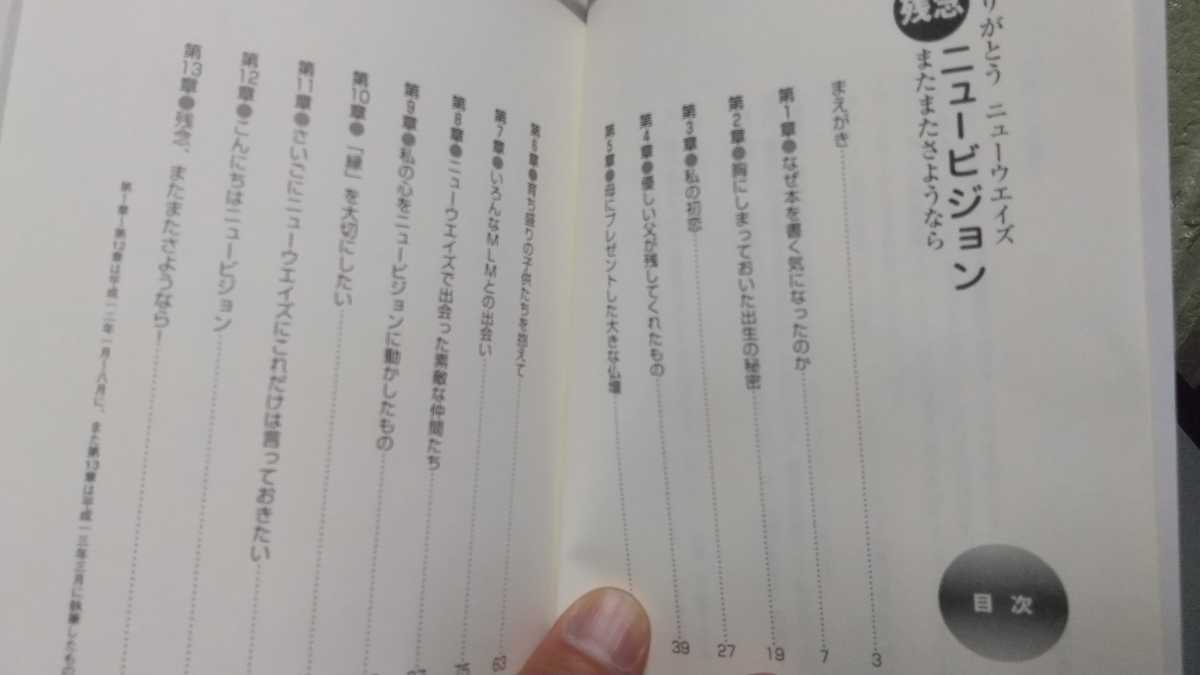 りがとう ニューウエイズ
残念 ニュービジョン
またまたさようなら
目次
まえがき 3
第1章●なぜ本を書く気になったのか 7
第2章●胸にしまっておいた出生の秘密 19
第3章●私の初恋 27
第4章●優しい父が残してくれたもの 39
第5章●母にプレゼントした大きな仏壇
第6章●育ち盛りの子供たちを抱えて 63
第7章●いろんなMLMとの出会い 75
第8章●ニューウエイズで出会った素敵な仲間たち
第9章●私の心をニュービジョンに動かしたもの
第10章●「縁」を大切にしたい
第11章●さいごにニューウエイズにこれだけは言っておきたい
第12章●こんにちはニュービジョン
第13章●残念、またまたさようなら！
第1章~第12章は平成一二年一月~八月に、また第13章は平成一三年三月に執筆したもの